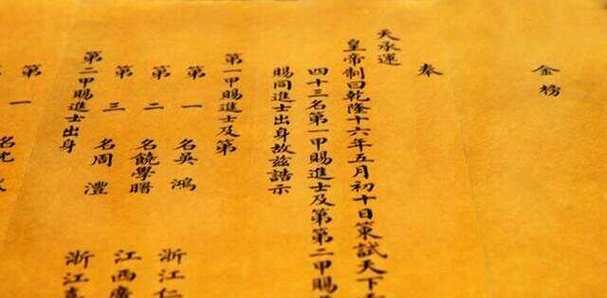 金榜
奉
天承運
皇帝制曰乾隆十六年五月初十日策試天下
四十三名第一甲賜進士及第第二甲賜
賜同進士出身故茲誥示
第一甲賜進士及第
第一名吳鴻 浙江仁
第二名饒學曙 江西廣
第三名周澧 浙江嘉
第二甲賜進士出身
第一名沈
第